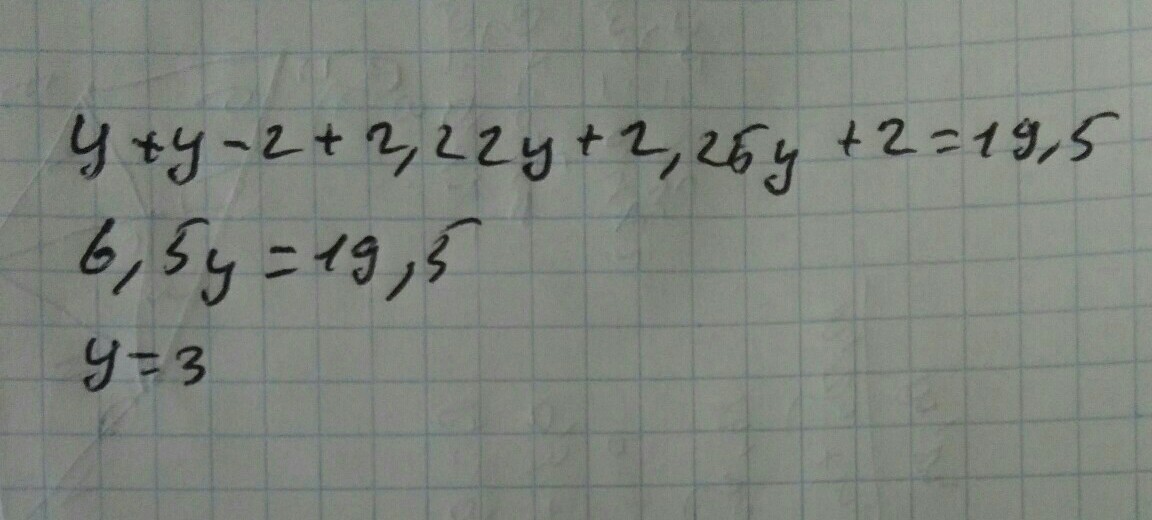 y + y - 2 + 2,22y + 2,25y + 2 = 19,5
6,5y = 19,5
y = 3